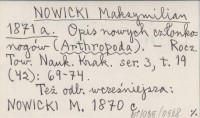 NOWICKI Maksymilian
1871 a. Opis nowych członko-
nogów (Arthropoda). – Rocz.
Tow. Nauk. Krak. ser. 3, t. 19
(42): 69-74.
Też odb. wcześniejsza:
NOWICKI M. 1870 c